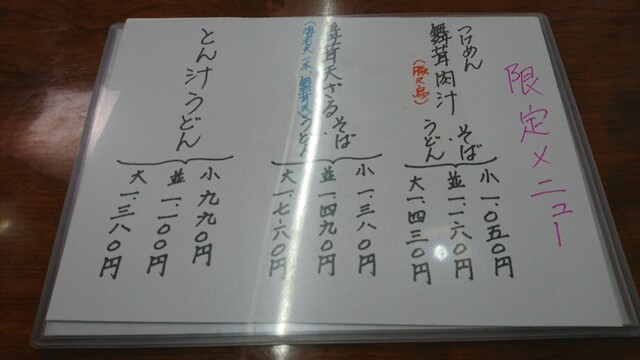 限定メニュー
つけめん
舞茸肉汁 そば うどん
(豚又鳥)
小 一、〇五〇円
並 一、一六〇円
大 一、四三〇円
舞茸天ざる そば うどん
小 一、三八〇円
並 一、四九〇円
大 一、七六〇円
とん汁うどん
小 九九〇円
並 一、一〇〇円
大 一、三八〇円